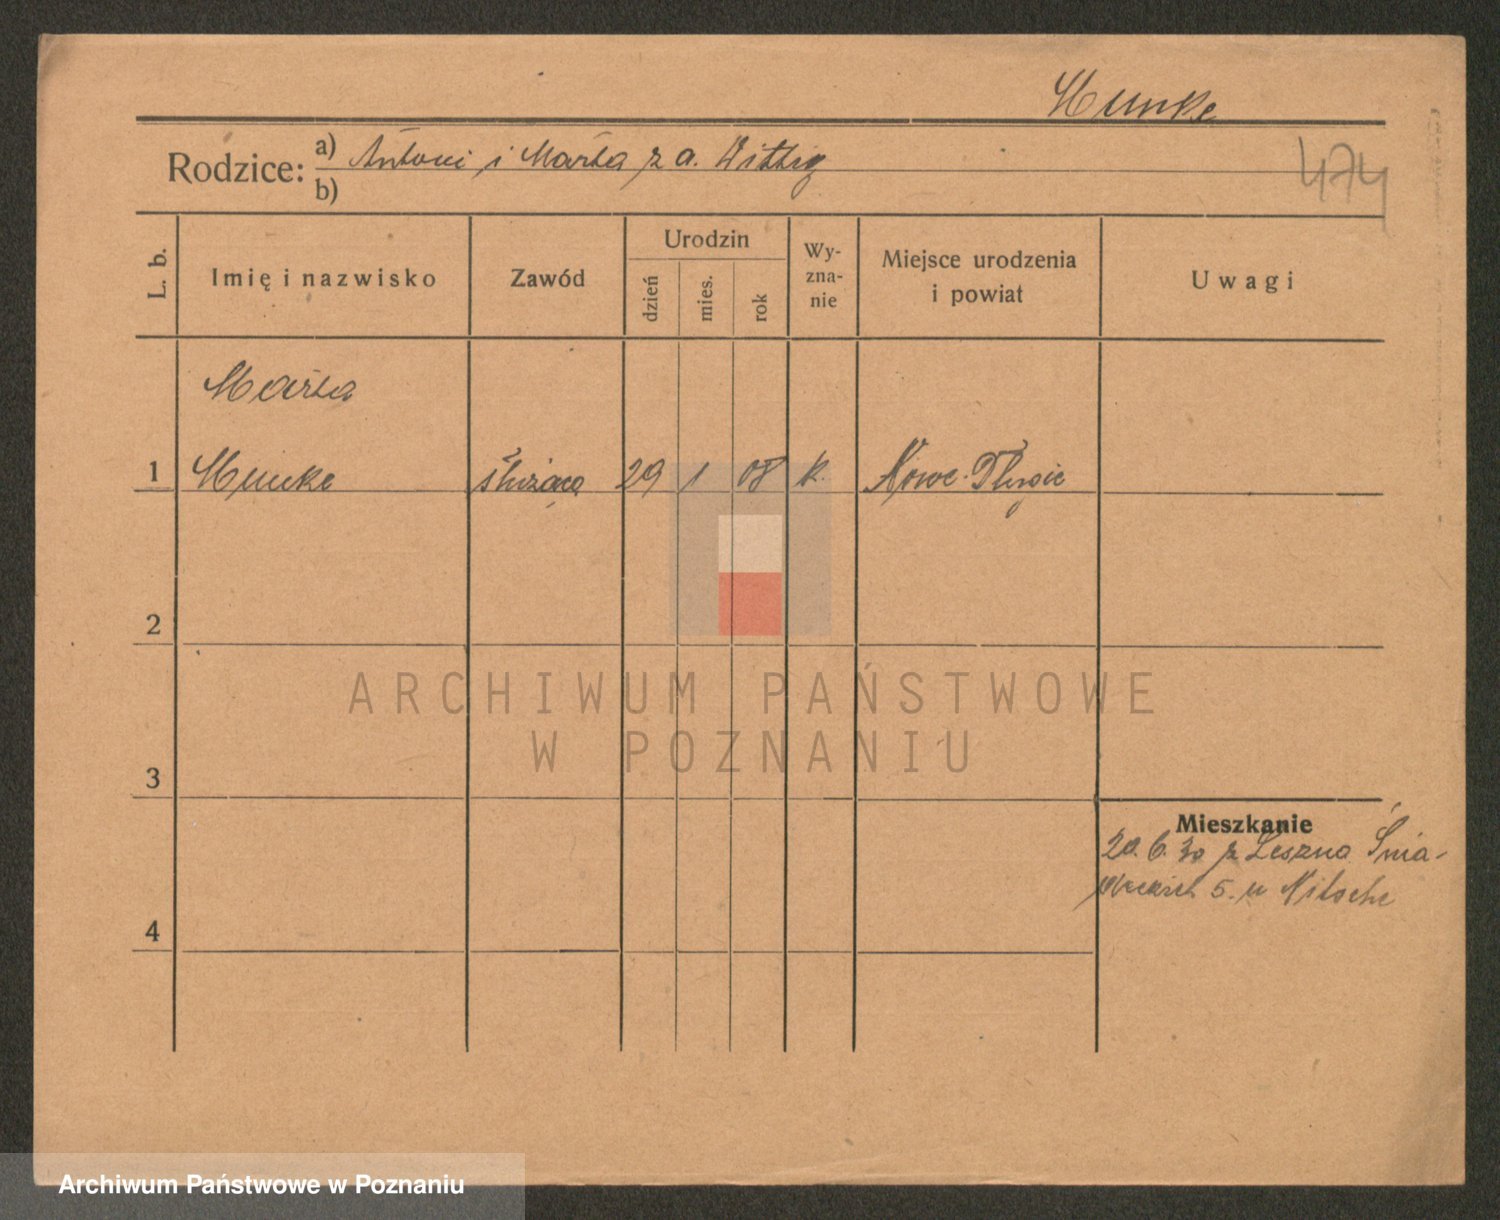 Munke
Rodzice: a) Antoni i Marta z d. Wittig
b)
474
L. b.
Imię i nazwisko
Zawód
Urodzin
dzień
mies.
rok
Wy-
zna-
nie
Miejsce urodzenia
i powiat
Uwagi
Marta
1 Munke służąca 29 1 08 k. Nowe-Długie
2
3
4
Mieszkanie
20. 6. 30 z Leszna Śnia-
deckich 5. u Nitsche
ARCHIWUM PAŃSTWOWE
W POZNANIU
Archiwum Państwowe w Poznaniu